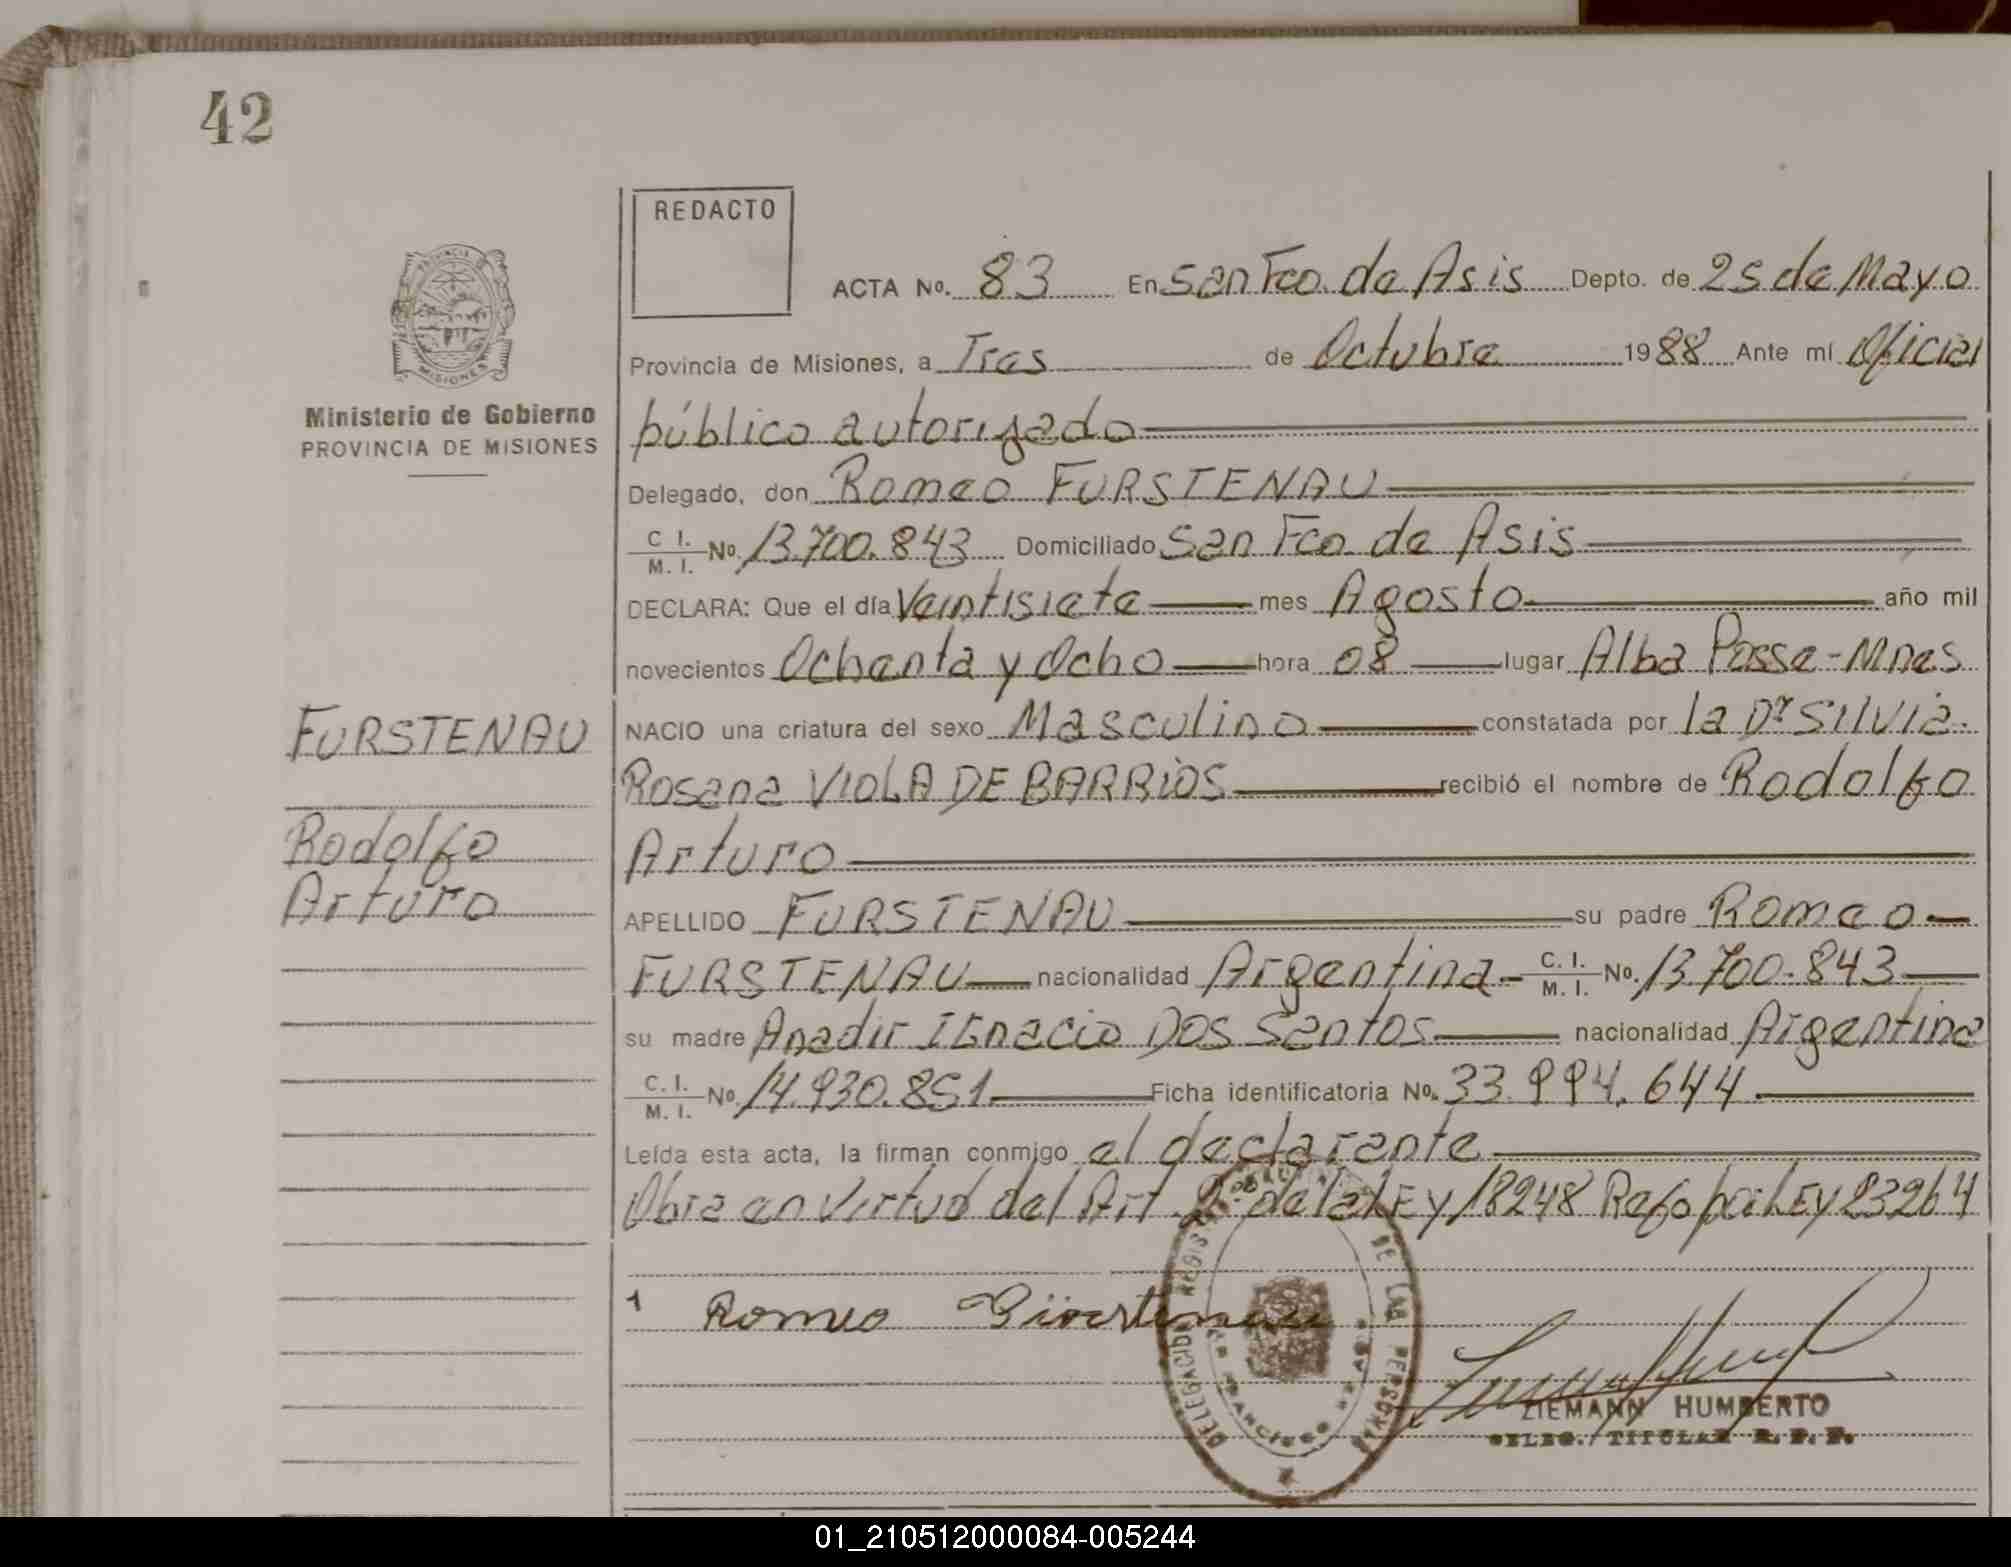 42
REDACTO
ACTA No. 83 En San Fco. de Asis Depto. de 25 de Mayo
Provincia de Misiones, a Tres de Octubre 1988 Ante mí Oficial
público autorizado
Delegado, don Romeo FURSTENAU
C. I. / M. I. No. 13.700.843 Domiciliado San Fco. de Asis
DECLARA: Que el día Veintisiete mes Agosto año mil
novecientos Ochenta y Ocho hora 08 lugar Alba Posse - Mnes
NACIO una criatura del sexo Masculino constatada por la Dra SILVIA
Rosana VIOLA DE BARRIOS recibió el nombre de Rodolfo
Arturo
APELLIDO FURSTENAU su padre Romeo
FURSTENAU nacionalidad Argentina - C. I. / M. I. No. 13.700.843
su madre Anadir IGnacio DOS Santos nacionalidad Argentina
C. I. / M. I. No. 14.930.851 Ficha identificatoria No. 33.994.644
Leída esta acta, la firman conmigo el declarante
Obra en Virtud del Art. 2º de la LEy 18248 Refo por LEy 23264
1 Romeo
ZIEMANN HUMBERTO
DELEG. TITULAR R. P. P.
DELEGACION REGIS DE LAS PERSONAS
FRANCISCO DE ASIS
PROVINCIA DE
MISIONES
Ministerio de Gobierno
PROVINCIA DE MISIONES
FURSTENAU
Rodolfo
Arturo
01_210512000084-005244